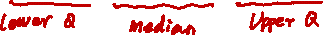 Lower Q Median Upper Q